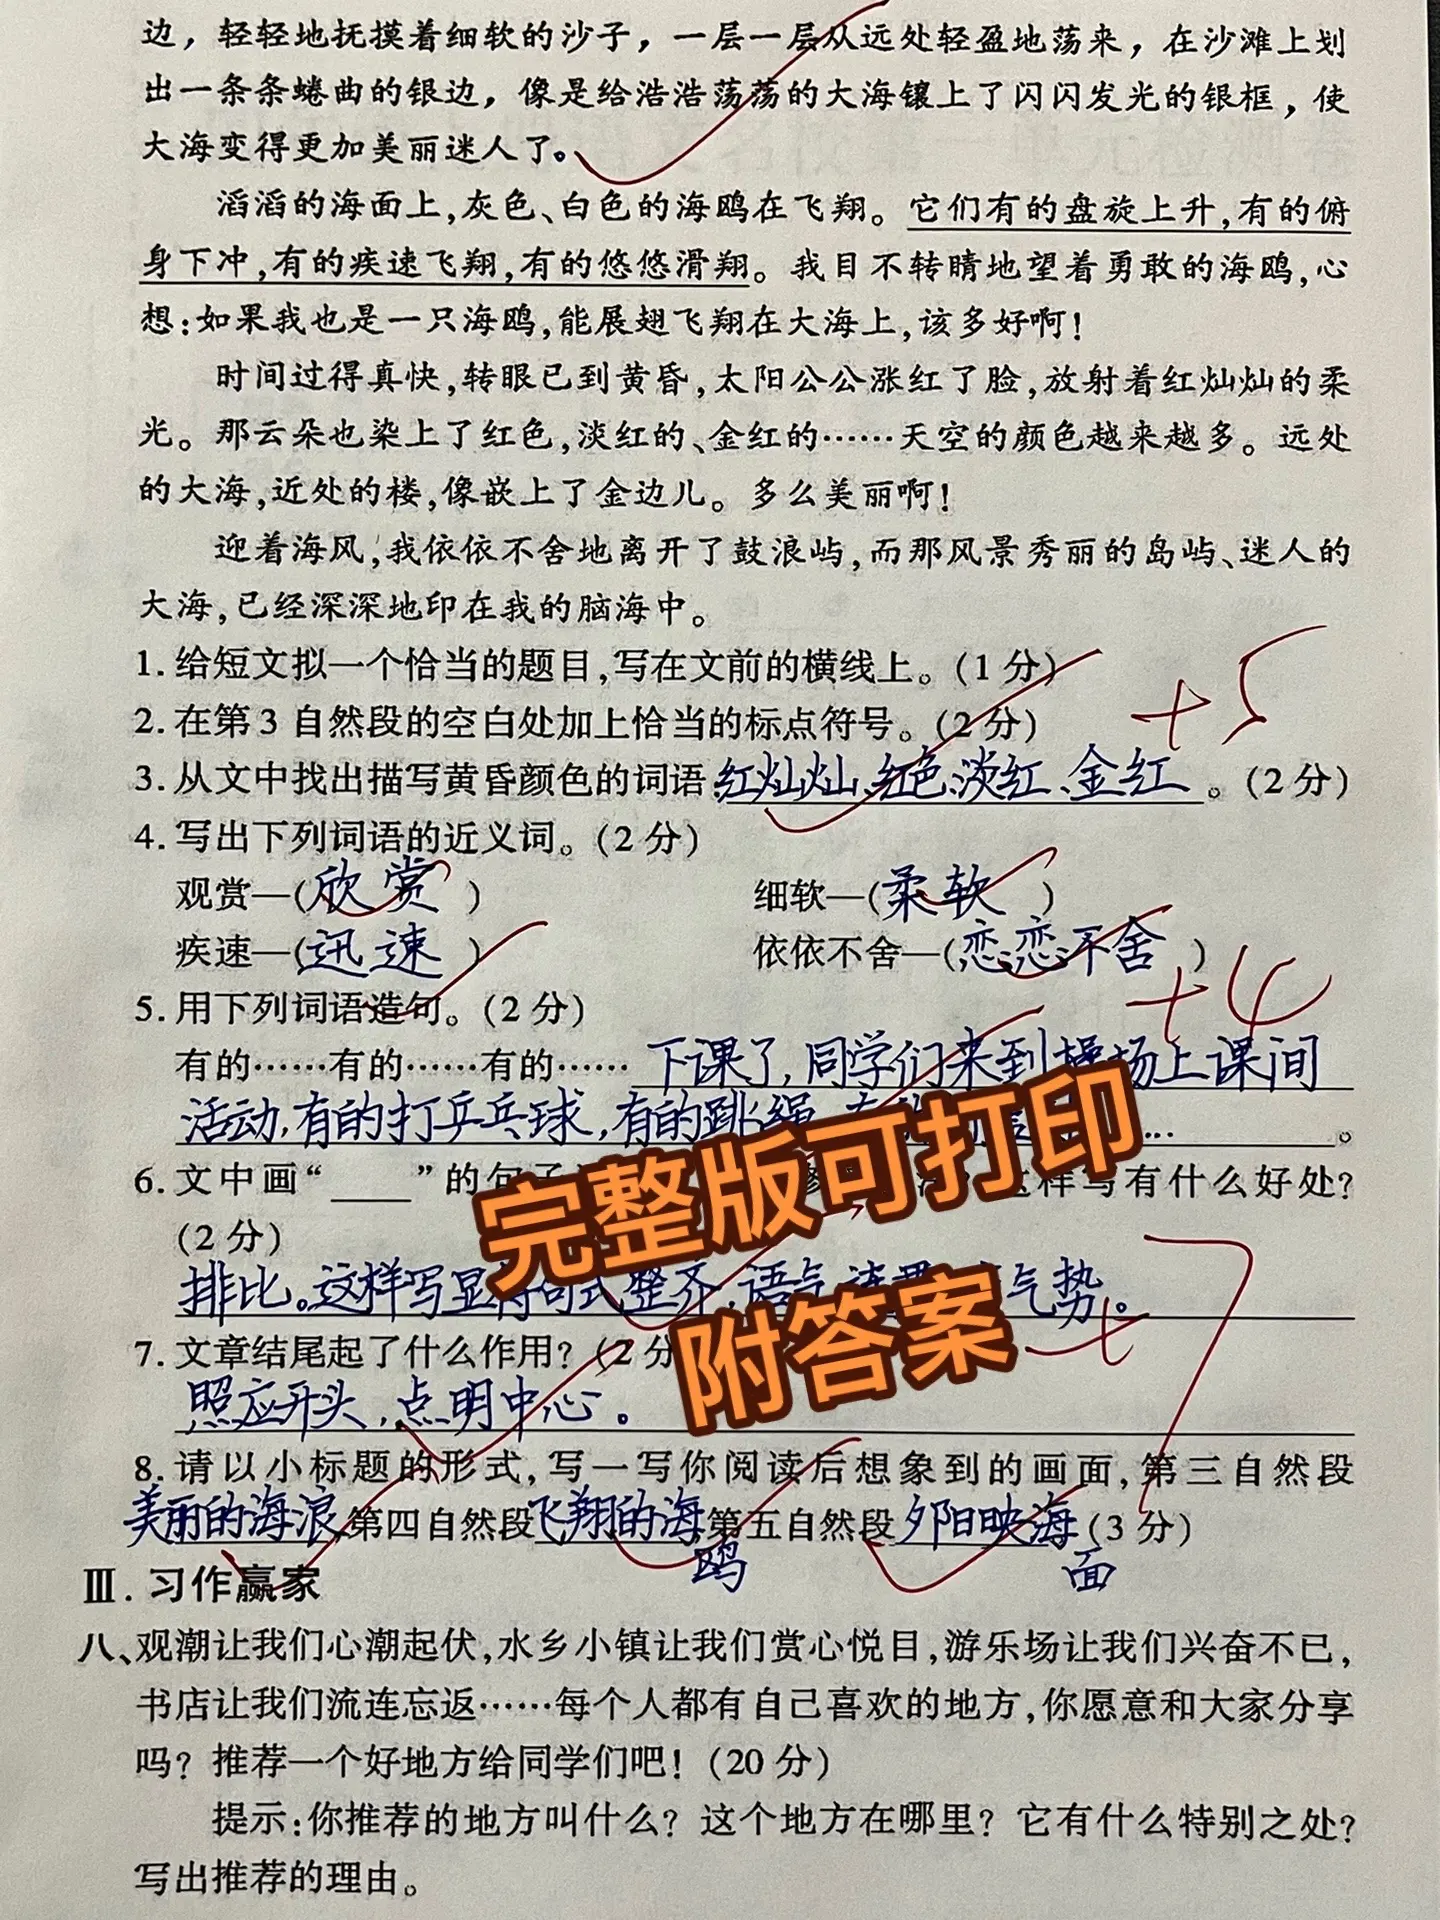 边，轻轻地抚摸着细软的沙子，一层一层从远处轻盈地荡来，在沙滩上划
出一条条蜷曲的银边，像是给浩浩荡荡的大海镶上了闪闪发光的银框，使
大海变得更加美丽迷人了。
滔滔的海面上,灰色、白色的海鸥在飞翔。它们有的盘旋上升,有的俯
身下冲,有的疾速飞翔,有的悠悠滑翔。我目不转睛地望着勇敢的海鸥,心
想:如果我也是一只海鸥,能展翅飞翔在大海上,该多好啊!
时间过得真快,转眼已到黄昏,太阳公公涨红了脸,放射着红灿灿的柔
光。那云朵也染上了红色,淡红的、金红的……天空的颜色越来越多。远处
的大海,近处的楼,像嵌上了金边儿。多么美丽啊!
迎着海风,我依依不舍地离开了鼓浪屿,而那风景秀丽的岛屿、迷人的
大海,已经深深地印在我的脑海中。
1. 给短文拟一个恰当的题目,写在文前的横线上。(1 分)
2. 在第 3 自然段的空白处加上恰当的标点符号。(2 分) +5
3. 从文中找出描写黄昏颜色的词语:红灿灿、红色、淡红、金红。(2 分)
4. 写出下列词语的近义词。(2 分)
观赏—(欣赏) 细软—(柔软)
疾速—(迅速) 依依不舍—(恋恋不舍) +4
5. 用下列词语造句。(2 分)
有的……有的……有的…… 下课了,同学们来到操场上课间
活动,有的打乒乓球,有的跳绳 ……。
6. 文中画“____”的句子 这样写有什么好处?
(2 分)
排比。这样写显得句式整齐,语气 气势。 +7
7. 文章结尾起了什么作用?(2 分
照应开头,点明中心。
8. 请以小标题的形式,写一写你阅读后想象到的画面,第三自然段
美丽的海浪,第四自然段飞翔的海鸥,第五自然段夕阳映海面(3 分)
Ⅲ. 习作赢家
八、观潮让我们心潮起伏,水乡小镇让我们赏心悦目,游乐场让我们兴奋不已,
书店让我们流连忘返……每个人都有自己喜欢的地方,你愿意和大家分享
吗? 推荐一个好地方给同学们吧!(20 分)
提示:你推荐的地方叫什么? 这个地方在哪里? 它有什么特别之处?
写出推荐的理由。
完整版可打印
附答案